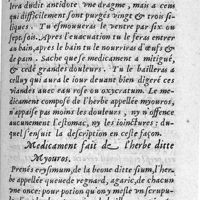 lera dudit antidote vne dragme, mais a ceux
qui difficilement sont purgés vingt & trois si-
liques: Tu esmouuras le ventre par six ou
sept fois. Apres l'euacuation tu le feras entrer
au bain, apres le bain tu le nourriras d'œufs &
de pain. Sache que se medicament a mitigué,
& cedé grandes douleurs. Tu le bailleras a
celluy qui aura le iour deuant bien digeré ces
viandes auec eau rose ou oxycratum. Le me-
dicament composé de l'herbe appellée myouros,
n'appaise pas moins les douleurs, ny n'offence
aucunement l'estomac, ny les ioinctures: du-
quel s'ensuit la description en ceste façon.
Medicament fait de l'herbe ditte
Myouros.
Prenés erysimum, de la broine ditte sium, l'her-
be appellée queue de regnard, agaric, de chacun
vne once: pour potion qu'on y mesle vn scrupu-